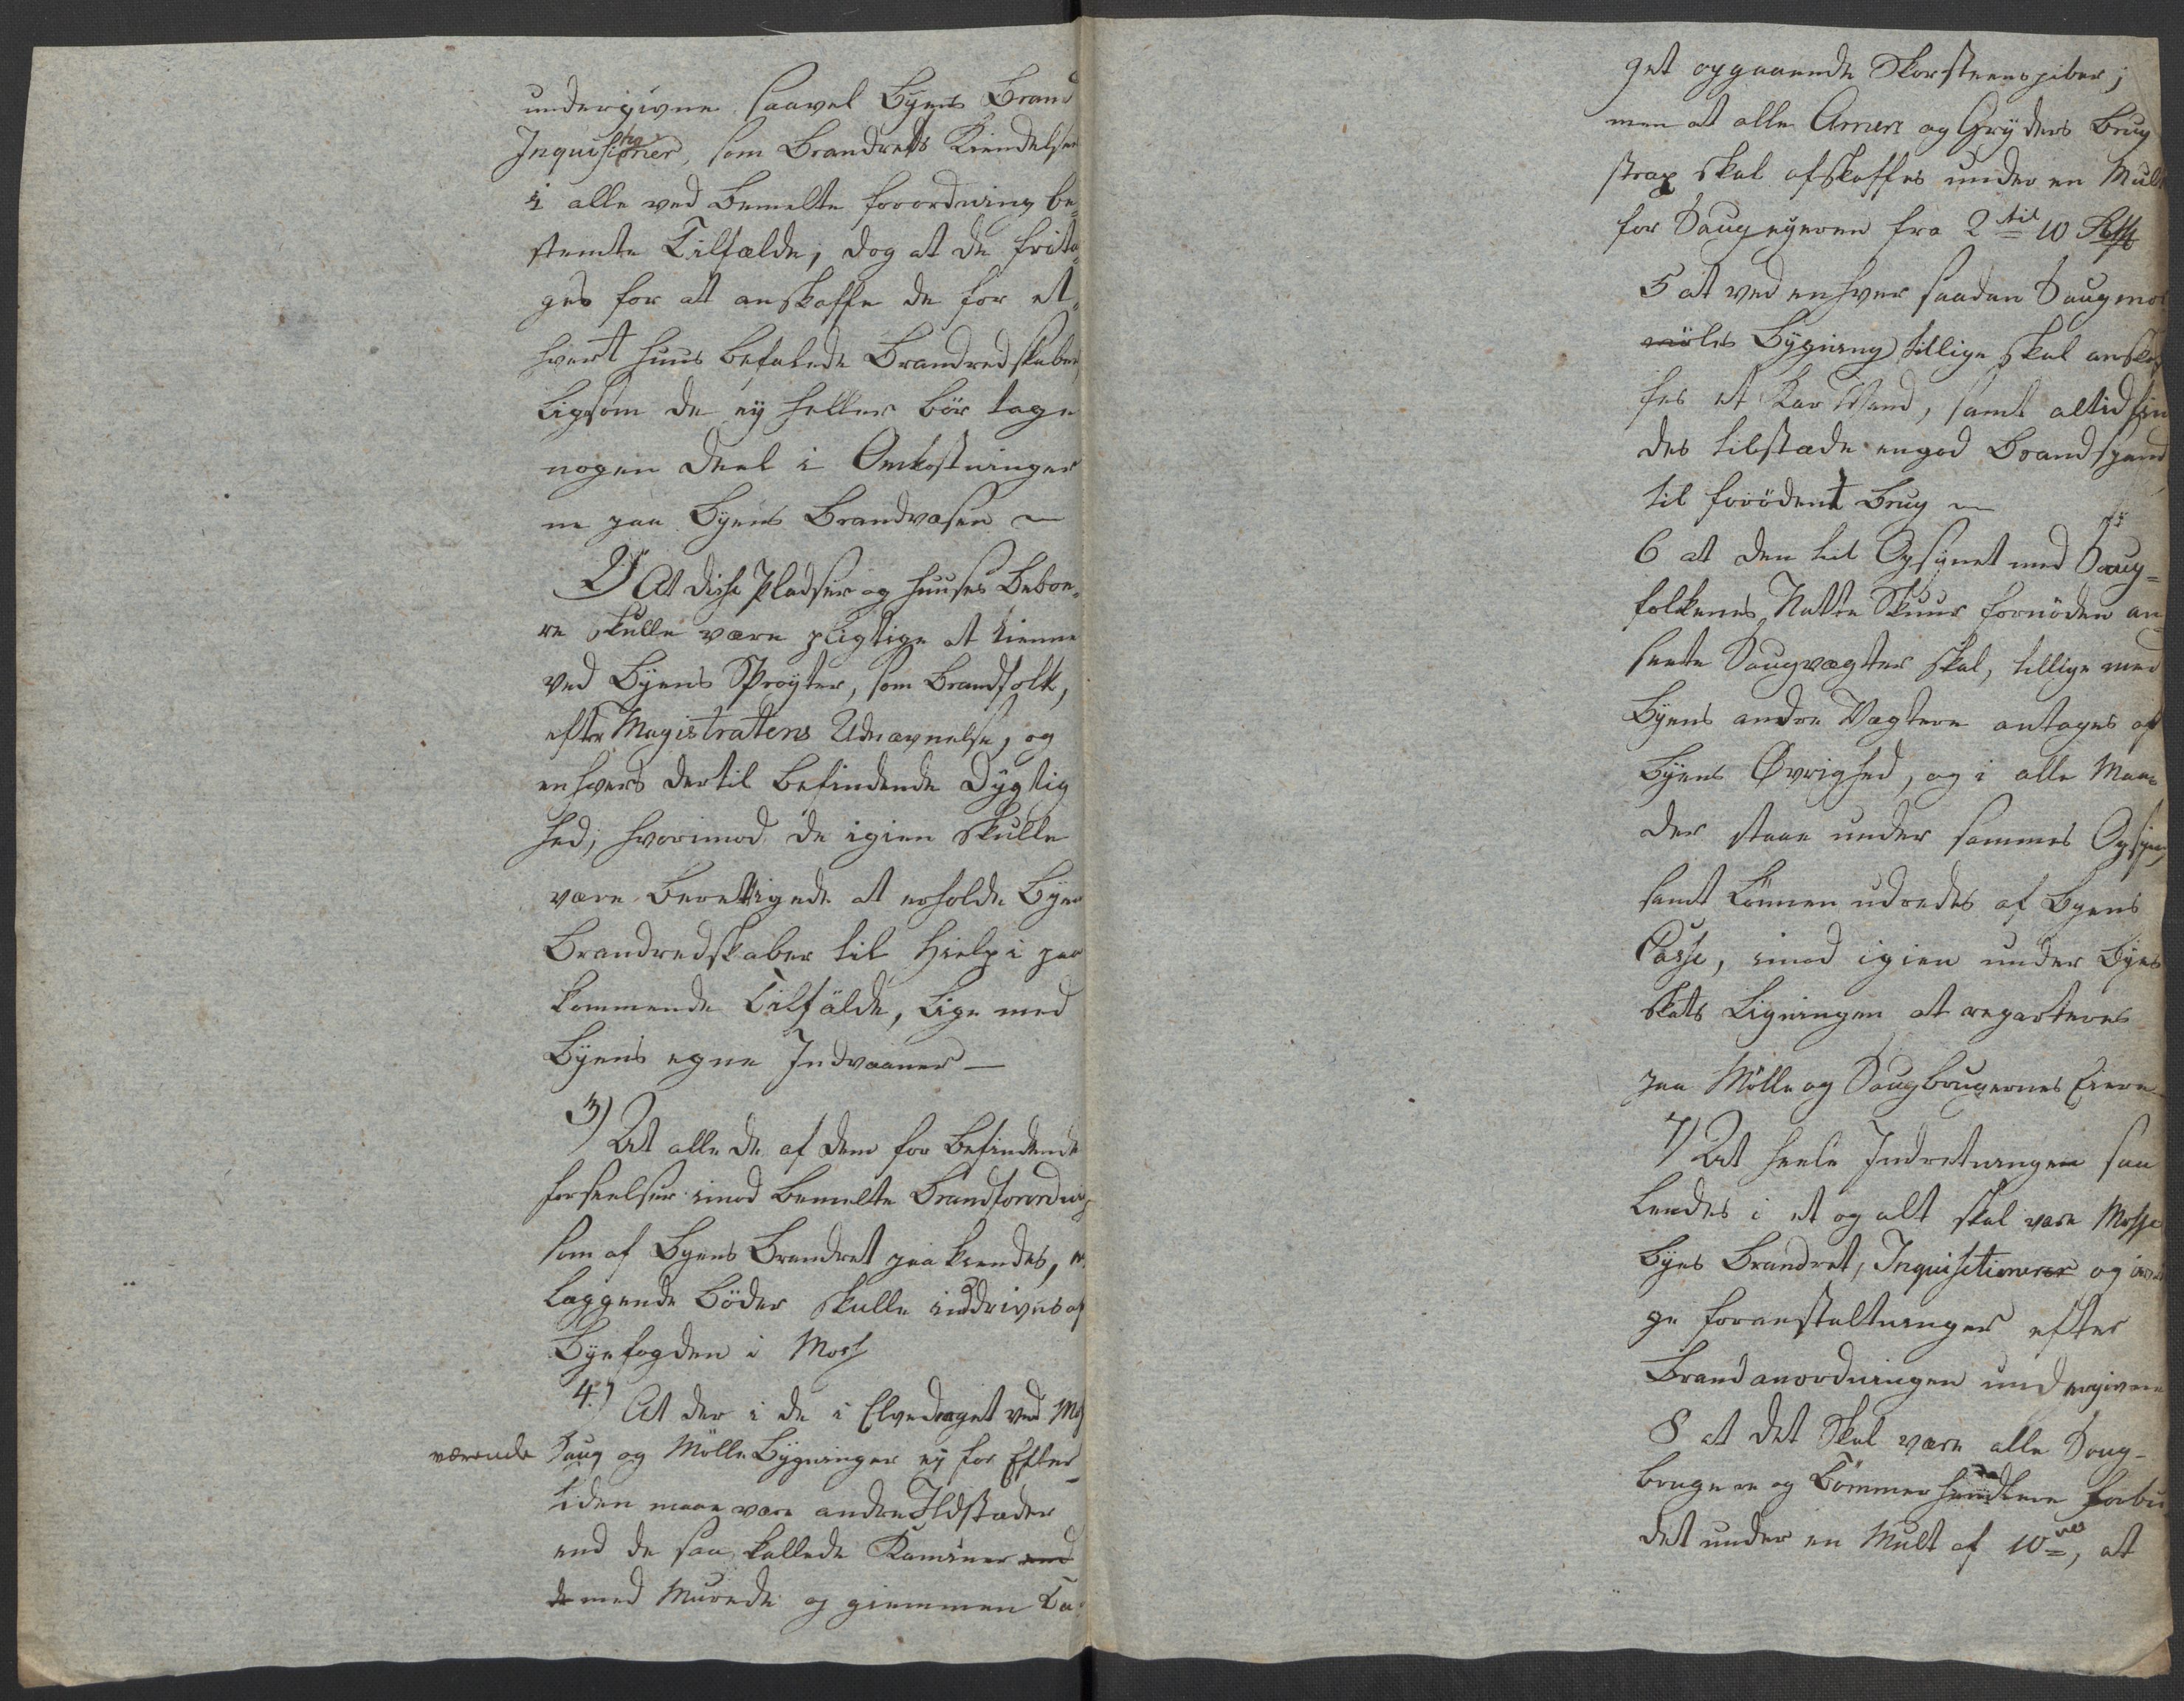 undergivne saavel Byens Brand
Inquisitioner, som Brandrets Kiendelser
i alle ved bemelte forordning be¬
stemte Tilfælde, dog at de frita¬
ges for at anskaffe de for et¬
hvert Huus befalede Brandredskaber
ligesom de ey heller bör tage
nogen Deel i Omkostninger
ne paa Byens Brandvæsen ~
2) At disse Pladser og Huuses Beboe¬
re skulle være pligtige at tienne
ved Byens Sprøyter, som Brandfolk,
efter Magistratens Udnævnelse, og
enhvers dertil befindende Dygtig
hed, hvorimod de igien skulle
være berettigede at erholde Byens
Brandredskaber til Hielp i paa
kommende Tilfælde, lige med
Byens egne Indvaaner —
3)
At alle de af dem for befindende
forseelser imod bemelte Brandforordning
som af Byens Brandret paakiendes,
læggende Böder skulle inddrives af
Byefogden i Moss
4.)
At der i de i Elvedraget ved Mos
værende Saug og Mölle Bygninger ey for Efter¬
tiden maae være andre Ildstæder
end de saa kallede Kaminer end
de med Murede og giennem Ta
get opgaaende Skorsteenspiber;
men at alle Arner og Gryders Brug
strax skal afskaffes under en Mult
for Saugeyeren fra 2 til 10 Rdr
5 at ved enhver saadan Saugmöl
möles Bygning tillige skal anskaf
fes et Kar Vand, samt altid fin
des tilstæde en god Brandspand
til fornödent Brug ~
6 at den til Opsynet med Saug=
folkenes Natte Skuur fornöden an
seete Saugvægter skal, tillige med
Byens andre Vægtere antages af
Byens Øvrighed, og i alle Maa¬
der staae under sammes Opsyn,
samt Lönnen udredes af Byens
Casse, imod igien under Byes
skatts Ligningen at reparteres
paa Mölle og Saugbrugernes Eiere
7) At heele Indretningen saa
ledes i et og alt skal være Mosse
Byes Brandret, Inquisitioner og övri
ge foranstaltninger efter
Brandanordningen undergivne
8 at det skal være alle Saug-
brugere og Tömmerhandlere forbu
det under en Mult af 10, at